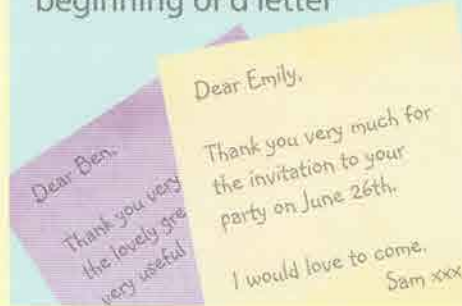 beginning of a letter
Dear Ben,
Thank you very
the lovely gre
very useful
Dear Emily,
Thank you very much for
the invitation to your
party on June 26th.
I would love to come.
Sam xxx